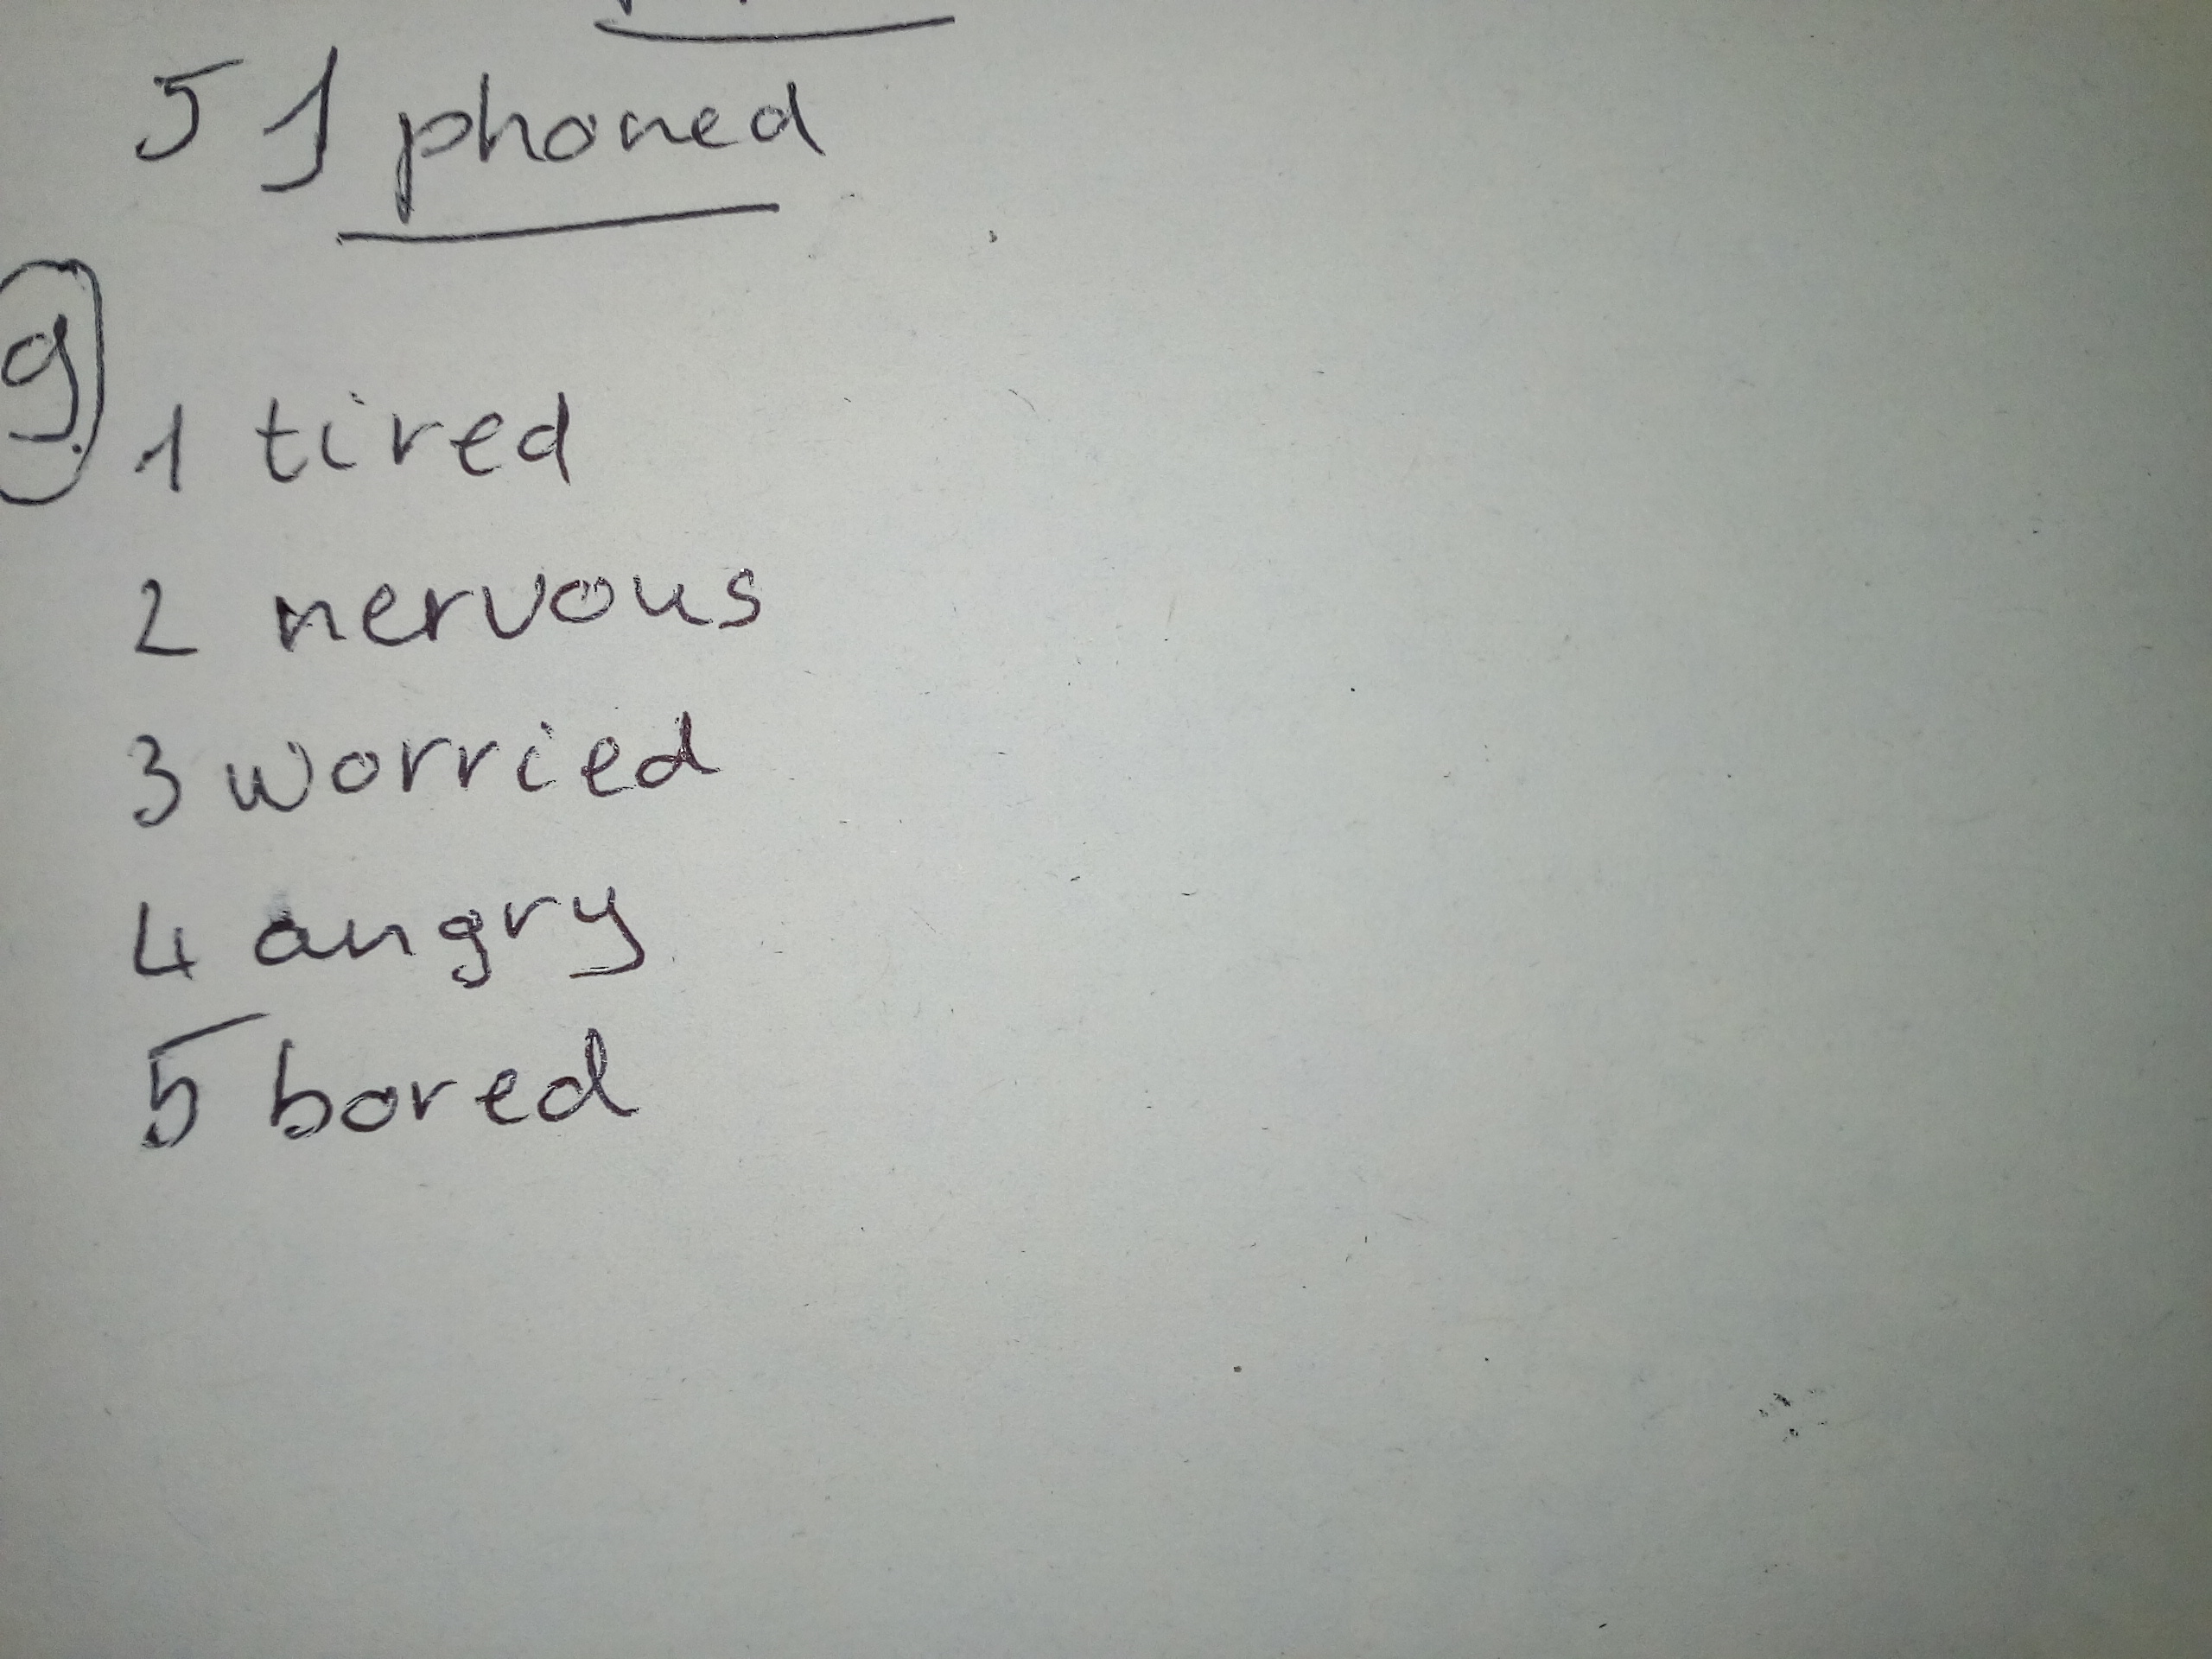 5 I phoned
9
1 tired
2 nervous
3 worried
4 angry
5 bored